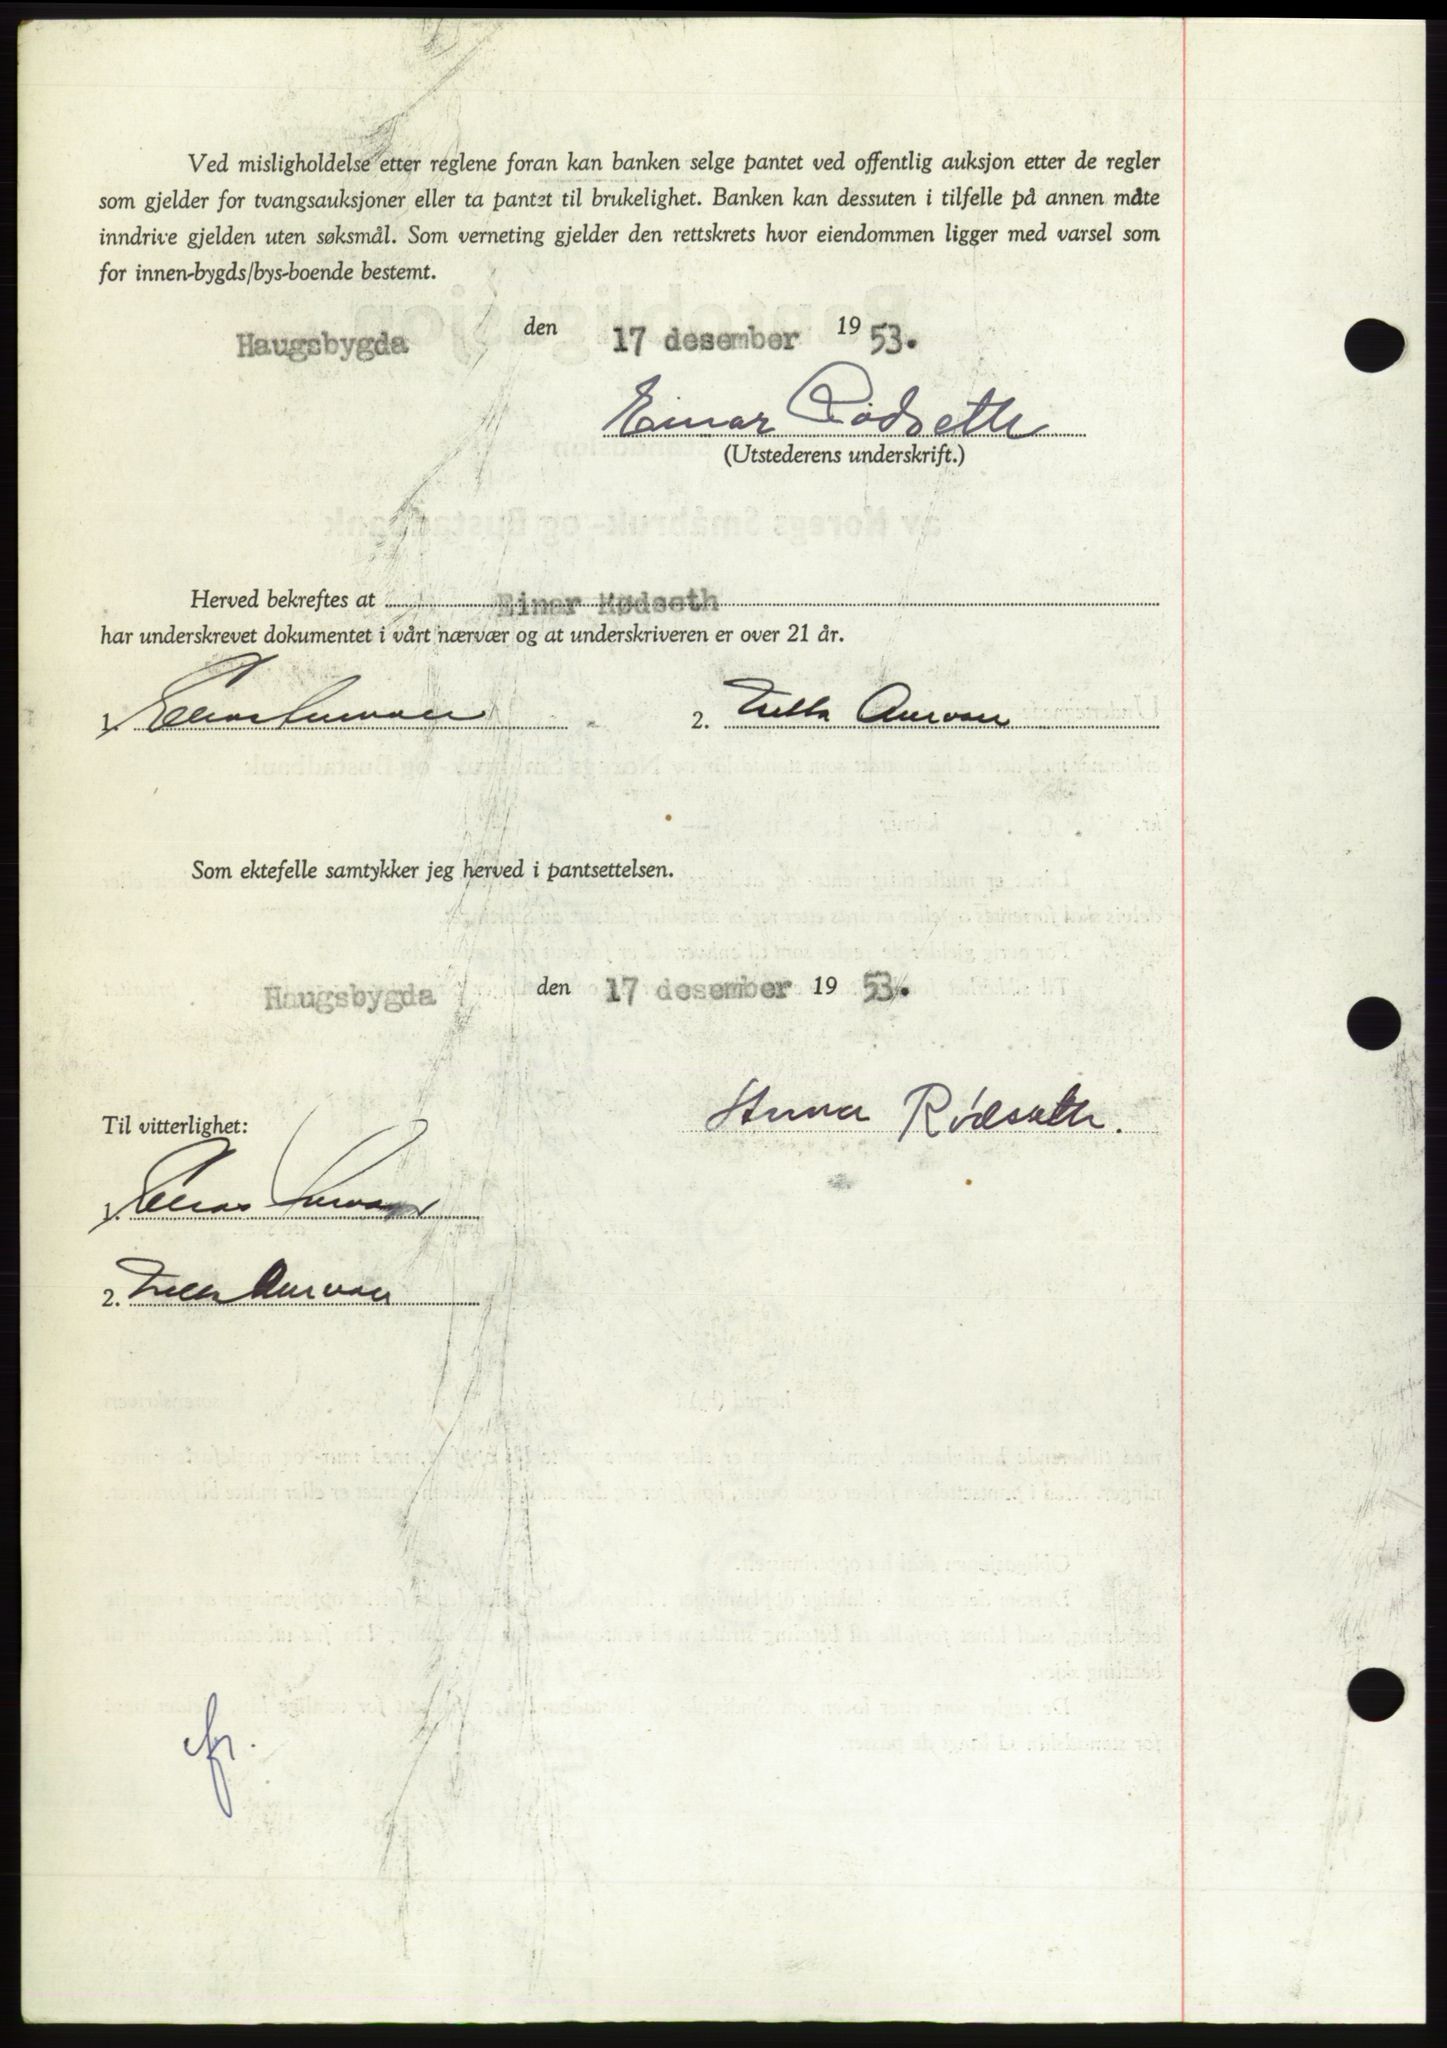 Ved misligholdelse etter reglene foran kan banken selge pantet ved offentlig auksjon etter de regler
som gjelder for tvangsauksjoner eller ta pantet til brukelighet. Banken kan dessuten i tilfelle på annen måte
inndrive gjelden uten søksmål. Som verneting gjelder den rettskrets hvor eiendommen ligger med varsel som
for innen-bygds/bys-boende bestemt.
Haugsbygda den 17 desember 19 53.
Einar Rødseth
(Utstederens underskrift.)
Herved bekreftes at Einar Rødseth
har underskrevet dokumentet i vårt nærvær og at underskriveren er over 21 år.
1. Elias Aurvåg 2. Aurvåg
Som ektefelle samtykker jeg herved i pantsettelsen.
Haugsbygda den 17 desember 19 53.
Anna Rødseth.
Til vitterlighet:
1. Elias
2.